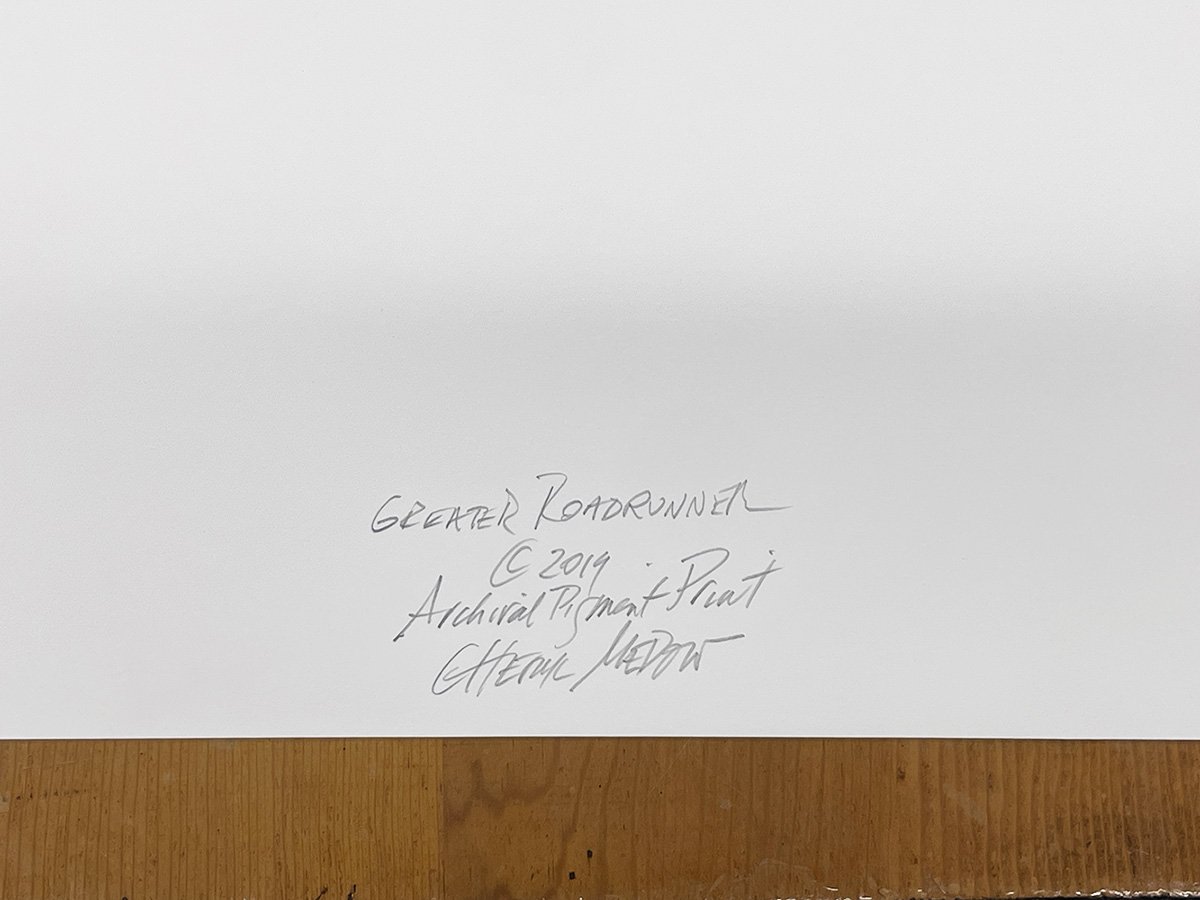 GREATER ROADRUNNER
© 2019
Archival Pigment Print
CHERYL MEDOW